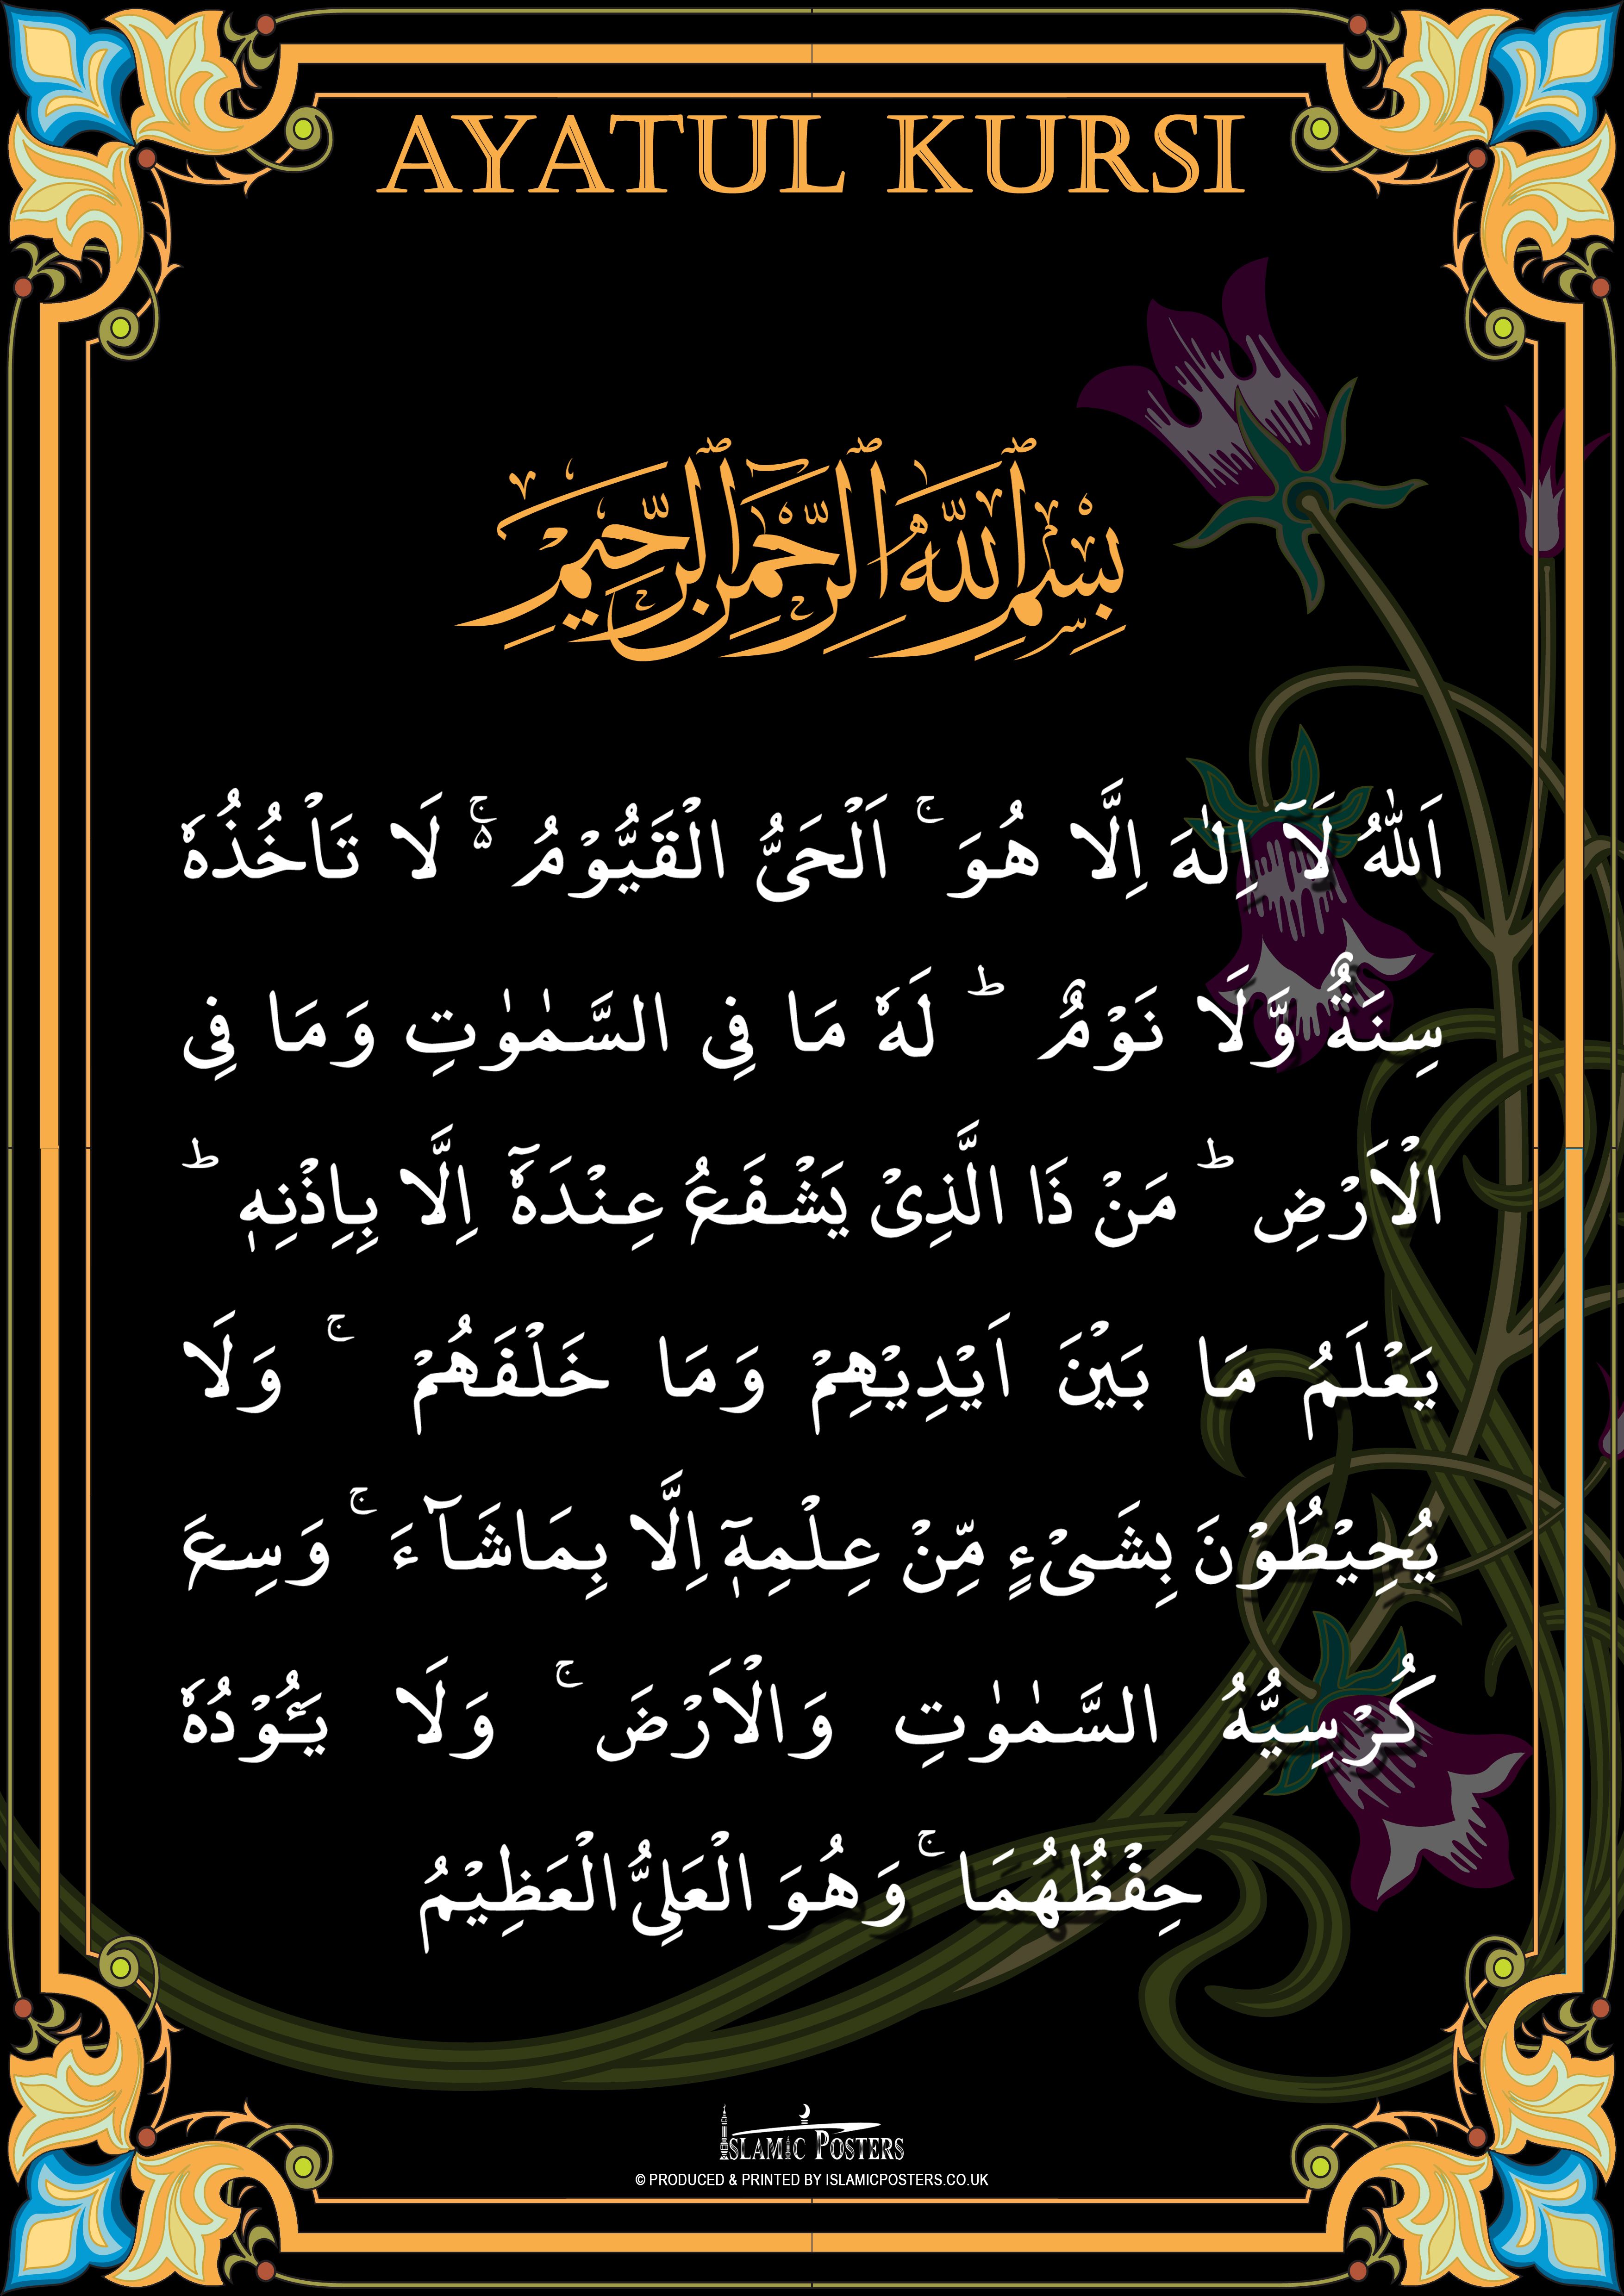 AYATUL KURSI
بِسْمِ ٱللَّهِ ٱلرَّحْمٰنِ ٱلرَّحِيمِ
اَللّٰهُ لَآ اِلٰهَ اِلَّا هُوَ ۚ اَلْحَىُّ الْقَيُّوْمُ ۚ۬ لَا تَاْخُذُهٗ
سِنَةٌ وَّلَا نَوْمٌ ؕ لَهٗ مَا فِى السَّمٰوٰتِ وَمَا فِى
الْاَرْضِ ؕ مَنْ ذَا الَّذِىْ يَشْفَعُ عِنْدَهٗٓ اِلَّا بِاِذْنِهٖ ؕ
يَعْلَمُ مَا بَيْنَ اَيْدِيْهِمْ وَمَا خَلْفَهُمْ ۚ وَلَا
يُحِيْطُوْنَ بِشَىْءٍ مِّنْ عِلْمِهٖٓ اِلَّا بِمَاشَآءَ ۚ وَسِعَ
كُرْسِيُّهُ السَّمٰوٰتِ وَالْاَرْضَ ۚ وَلَا يَـُٔوْدُهٗ
حِفْظُهُمَا ۚ وَهُوَ الْعَلِىُّ الْعَظِيْمُ
ISLAMIC POSTERS
© PRODUCED & PRINTED BY ISLAMICPOSTERS.CO.UK